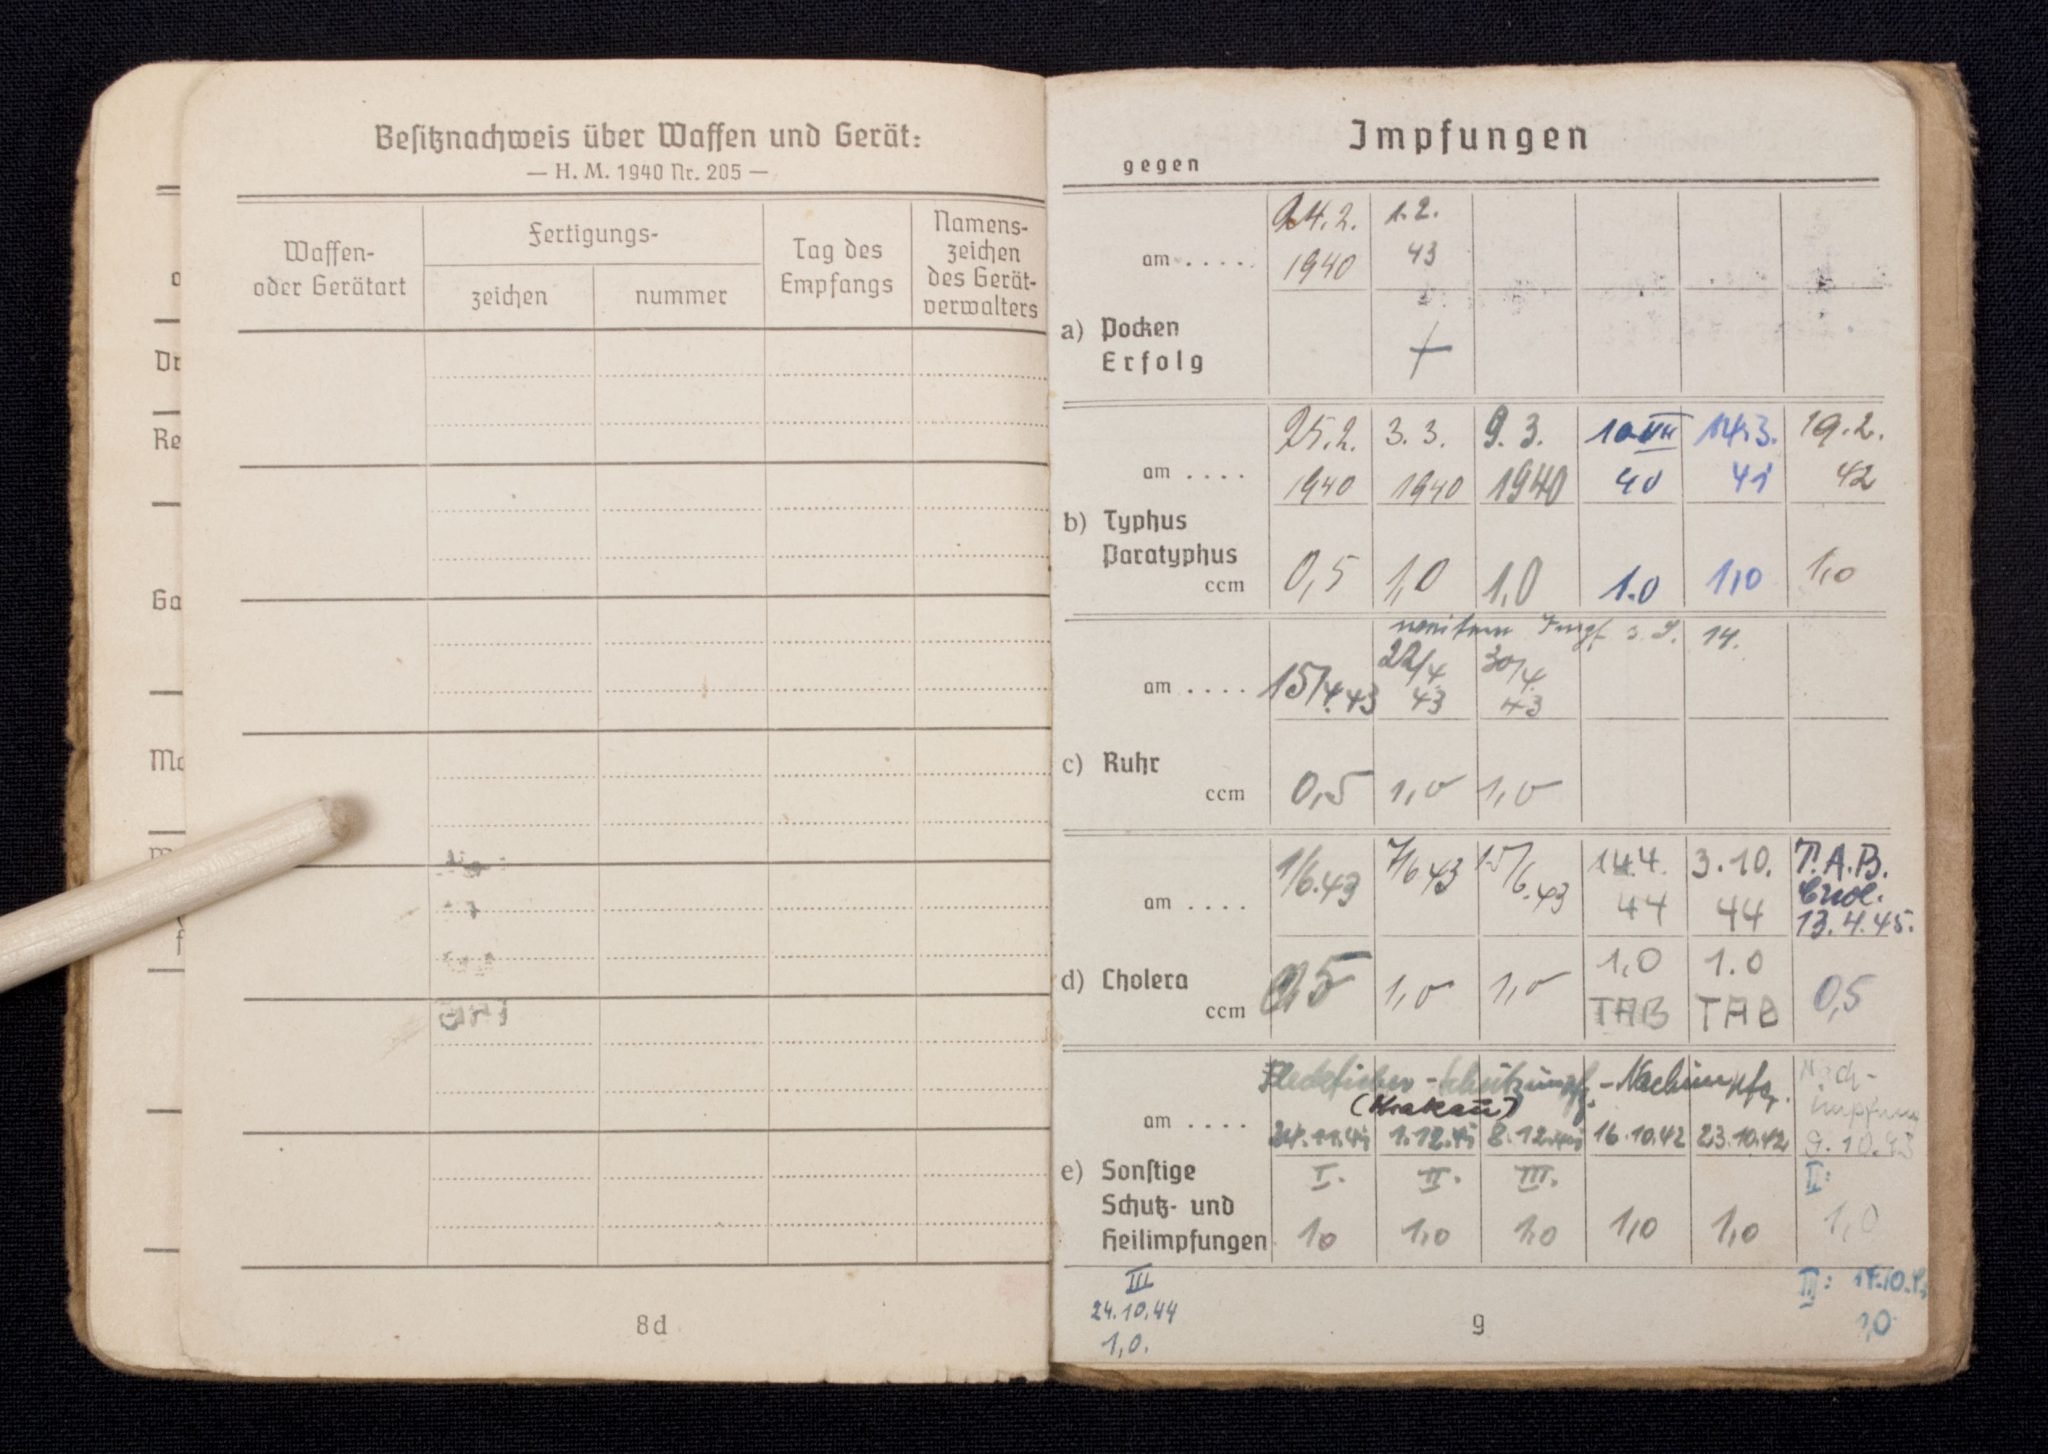 Besitznachweis über Waffen und Gerät:
— H. M. 1940 Nr. 205 —
Waffen-
oder Gerätart
Fertigungs-
zeichen
nummer
Tag des
Empfangs
Namens-
zeichen
des Gerät-
verwalters
8d
Dr
Re
Ga
Ma
Impfungen
gegen
24.2. 1.2.
am . . . . 1940 43
a) Pocken
Erfolg +
25.2. 3. 3. 9. 3. 14.3. 19.2.
am . . . . 1940 1940 1940 40 41 42
b) Typhus
Paratyphus
ccm 0,5 1,0 1,0 1.0 1,0 1,0
s. S. 14.
am . . . . 15/4.43 22/4 43 30/4 43
c) Ruhr
ccm 0,5 1,0 1,0
1/6.43 7/6 43 15/6.43 14.4. 3.10. T.A.B.
Chol.
am . . . . 44 44 13.4.45.
1,0 1.0
d) Cholera
ccm 0,5 1,0 1,0 TAB TAB 0,5
Fleckfieber-Schutzimpf. - Nachimpfg. Nach-
(Krakau) impfung
am . . . . 24.11.41 1.12.41 8.12.41 16.10.42 23.10.42 9.10.43
e) Sonstige I. II. III. II:
Schutz- und
Heilimpfungen 1,0 1,0 1,0 1,0 1,0 1,0
III
24.10.44
1,0.
9
1,0